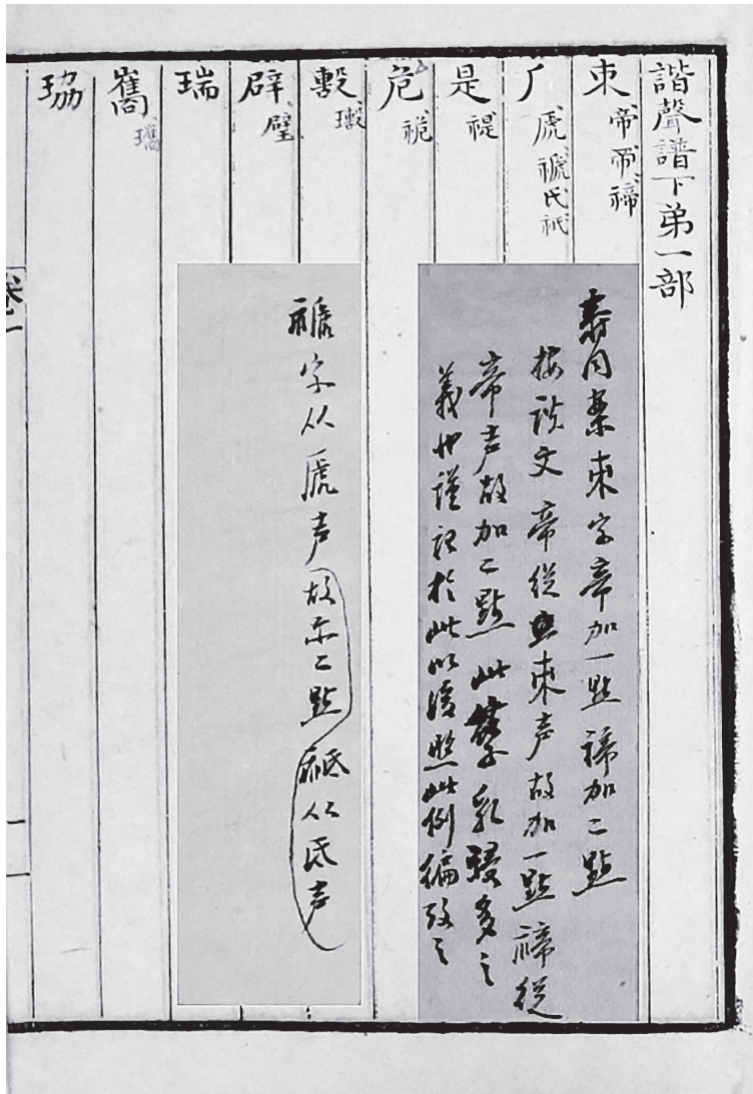 諧聲譜下弟一部
朿 帝 帝 禘
厂 虒 禠 氏 祇
是 禔
危 祪
毄
辟 璧
瑞
巂 瓗
珕
同案朿字帝加一點禘加二點
按說文帝從朿声故加一點禘從
帝声故加二點此孳乳寖多之
義也謹記於此以後照此例編致之
禠字从虒声故亦二點祇从氏声